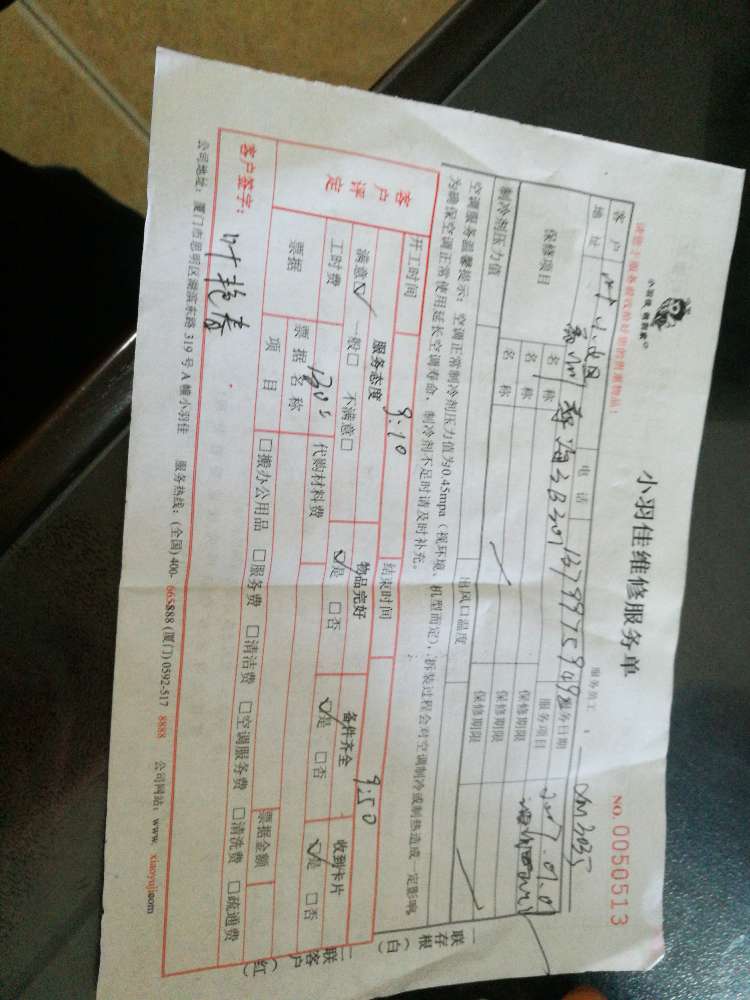 小羽佳维修服务单
NO. 0050513
服务员工
客户 电话 13799759498 服务日期
地址 3B301 服务项目
保修项目 名称 保修期限
名称 保修期限
名称 保修期限
制冷剂压力值 出风口温度
空调服务温馨提示：空调正常制冷剂压力值为0.45mpa（视环境、机型而定），拆装过程会对空调制冷或制热造成一定影响，
为确保空调正常使用延长空调寿命，制冷剂不足时请及时补充。
开工时间 9:10 结束时间 9:50
客户评定 服务态度 物品完好 备件齐全 收到卡片
满意☑ 一般□ 不满意□ ☑是 □否 ☑是 □否 ☑是 □否
工时费 代购材料费
票据 票据名称 票据金额
项目 □搬办公用品 □服务费 □清洁费 □空调服务费 □清洗费 □疏通费
客户签字：叶艳春
公司地址：厦门市思明区湖滨东路319号A幢小羽佳 服务热线：(全国) 400-665888 (厦门) 0592-517 8888 公司网站：www. xiaoyujia.com
一联存根（白）
二联客户（红）